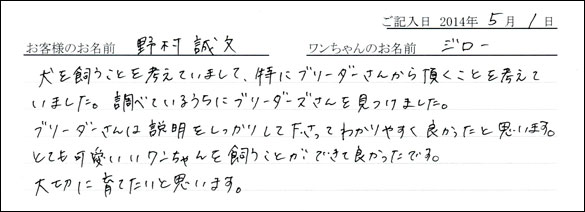 ご記入日 2014年 5月 1日
お客様のお名前 野村 誠文 ワンちゃんのお名前 ジロー
犬を飼うことを考えていまして、特にブリーダーさんから頂くことを考えて
いました。調べているうちにブリーダーズさんを見つけました。
ブリーダーさんは説明をしっかりして下さってわかりやすく良かったと思います。
とても可愛いいワンちゃんを飼うことができて良かったです。
大切に育てたいと思います。